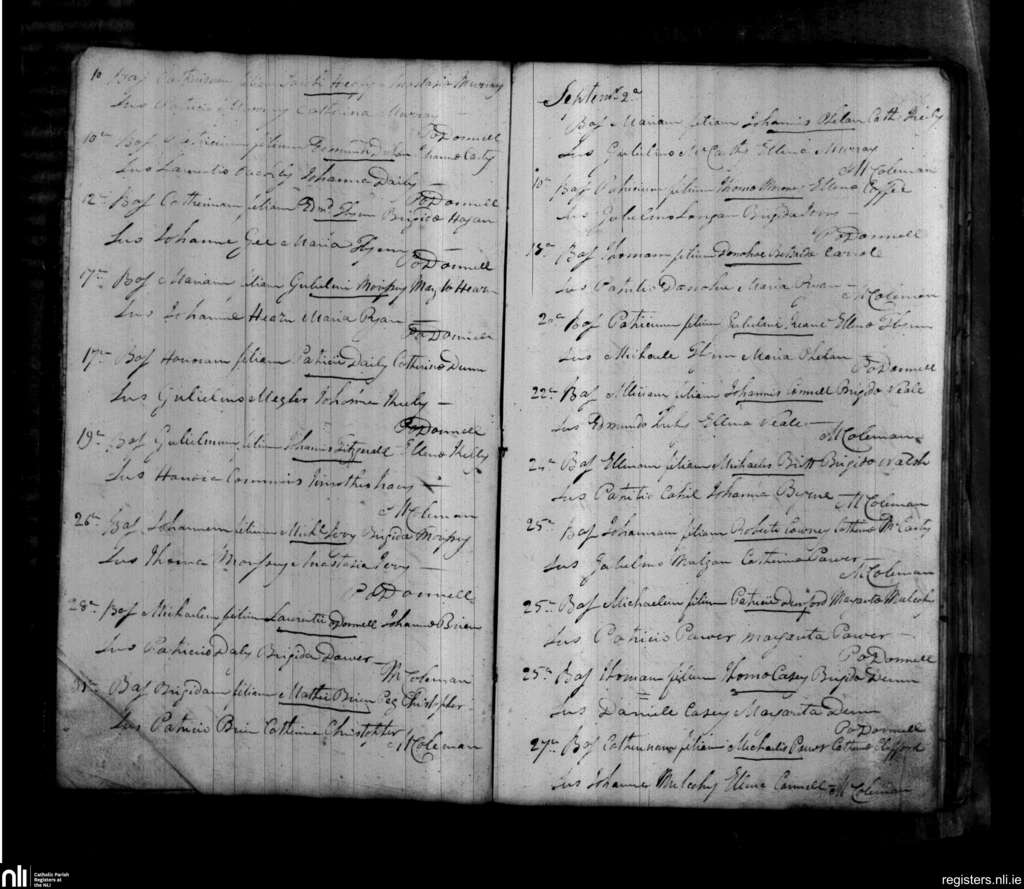 10 Bap Catherinam filiam Heany Anastasia Murray
Sus Patricio Murray Catherina Murray
P O Donnell
10 Bap Patricium filium Edmundi Johanna Carty
Sus Laurentio Johanna Daily
P O Donnell
12 Bap Catherinam filiam Edmd Flynn Brigida Hagan
Sus Johanne Gee Maria Flynn
P O Donnell
17 Bap Mariam filiam Gulielmi Morissy Mary Hearn
Sus Johanne Hearn Maria Ryan
P O Donnell
17 Bap Honoram filiam Patricii Daily Catherina Dunn
Sus Gulielmo Meagher Johanna Kiely
P O Donnell
19 Bap Gulielmum filium Johannis Fitzgerald Ellena Kiely
Sus Honora Commins Timotheo
M Coleman
26 Bap Johannem filium Michl Brigida Morissy
Sus Thoma Morissy Anastasia
P O Donnell
28 Bap Michaelem filium Laurentii O Donnell Johanna Brien
Sus Patricio Daly Brigida Power
M Coleman
31 Bap Brigidam filiam Mathei Brien Peg Christopher
Sus Patricio Brien Catherina Christopher
M Coleman
Septemr 2a
Bap Mariam filiam Johannis Phelan Cath. Kiely
Sus Gulielmo McCarthy Ellena Murray
M Coleman
10 Bap Patricium filium Thoma Ellena Coffee
Sus Gulielmo Langan Brigida
P O Donnell
18 Bap Thomam filium Donohoe Carrole
Sus Patricio Donohue Maria Ryan
M Coleman
20 Bap Patricium filium Gulielmi Keane Ellena Flynn
Sus Michaele Flynn Maria Phelan
P O Donnell
22 Bap Mariam filiam Johannis Connell Brigida Veale
Sus Edmundo Ellena Veale
M Coleman
24 Bap Ellenam filiam Michaelis Britt Brigida Walsh
Sus Patritio Cahil Johanna Byrne
M Coleman
25 Bap Johannam filiam Roberti Catherina McCarty
Sus Gulielmo Catherina Power
M Coleman
25 Bap Michaelem filium Patricii Margarita Mulcahy
Sus Patricio Power Margarita Power
P O Donnell
25 Bap Thomam filium Thoma Casey Brigida Dunn
Sus Daniele Casey Margarita Dunn
P O Donnell
27 Bap Catherinam filiam Michaelis Power Catherina Clifford
Sus Johanne Mulcahy Ellena Connell M Coleman
nli Catholic Parish
Registers at
the NLI
registers.nli.ie